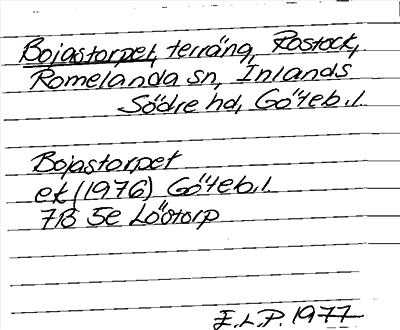 Bojastorpet, terräng, Rostock,
Romelanda sn, Inlands
Södre hd, Göteb. l.
Bojastorpet
ek (1976) Göteb. l.
7B 5e Lödtorp
E.L.P. 1977